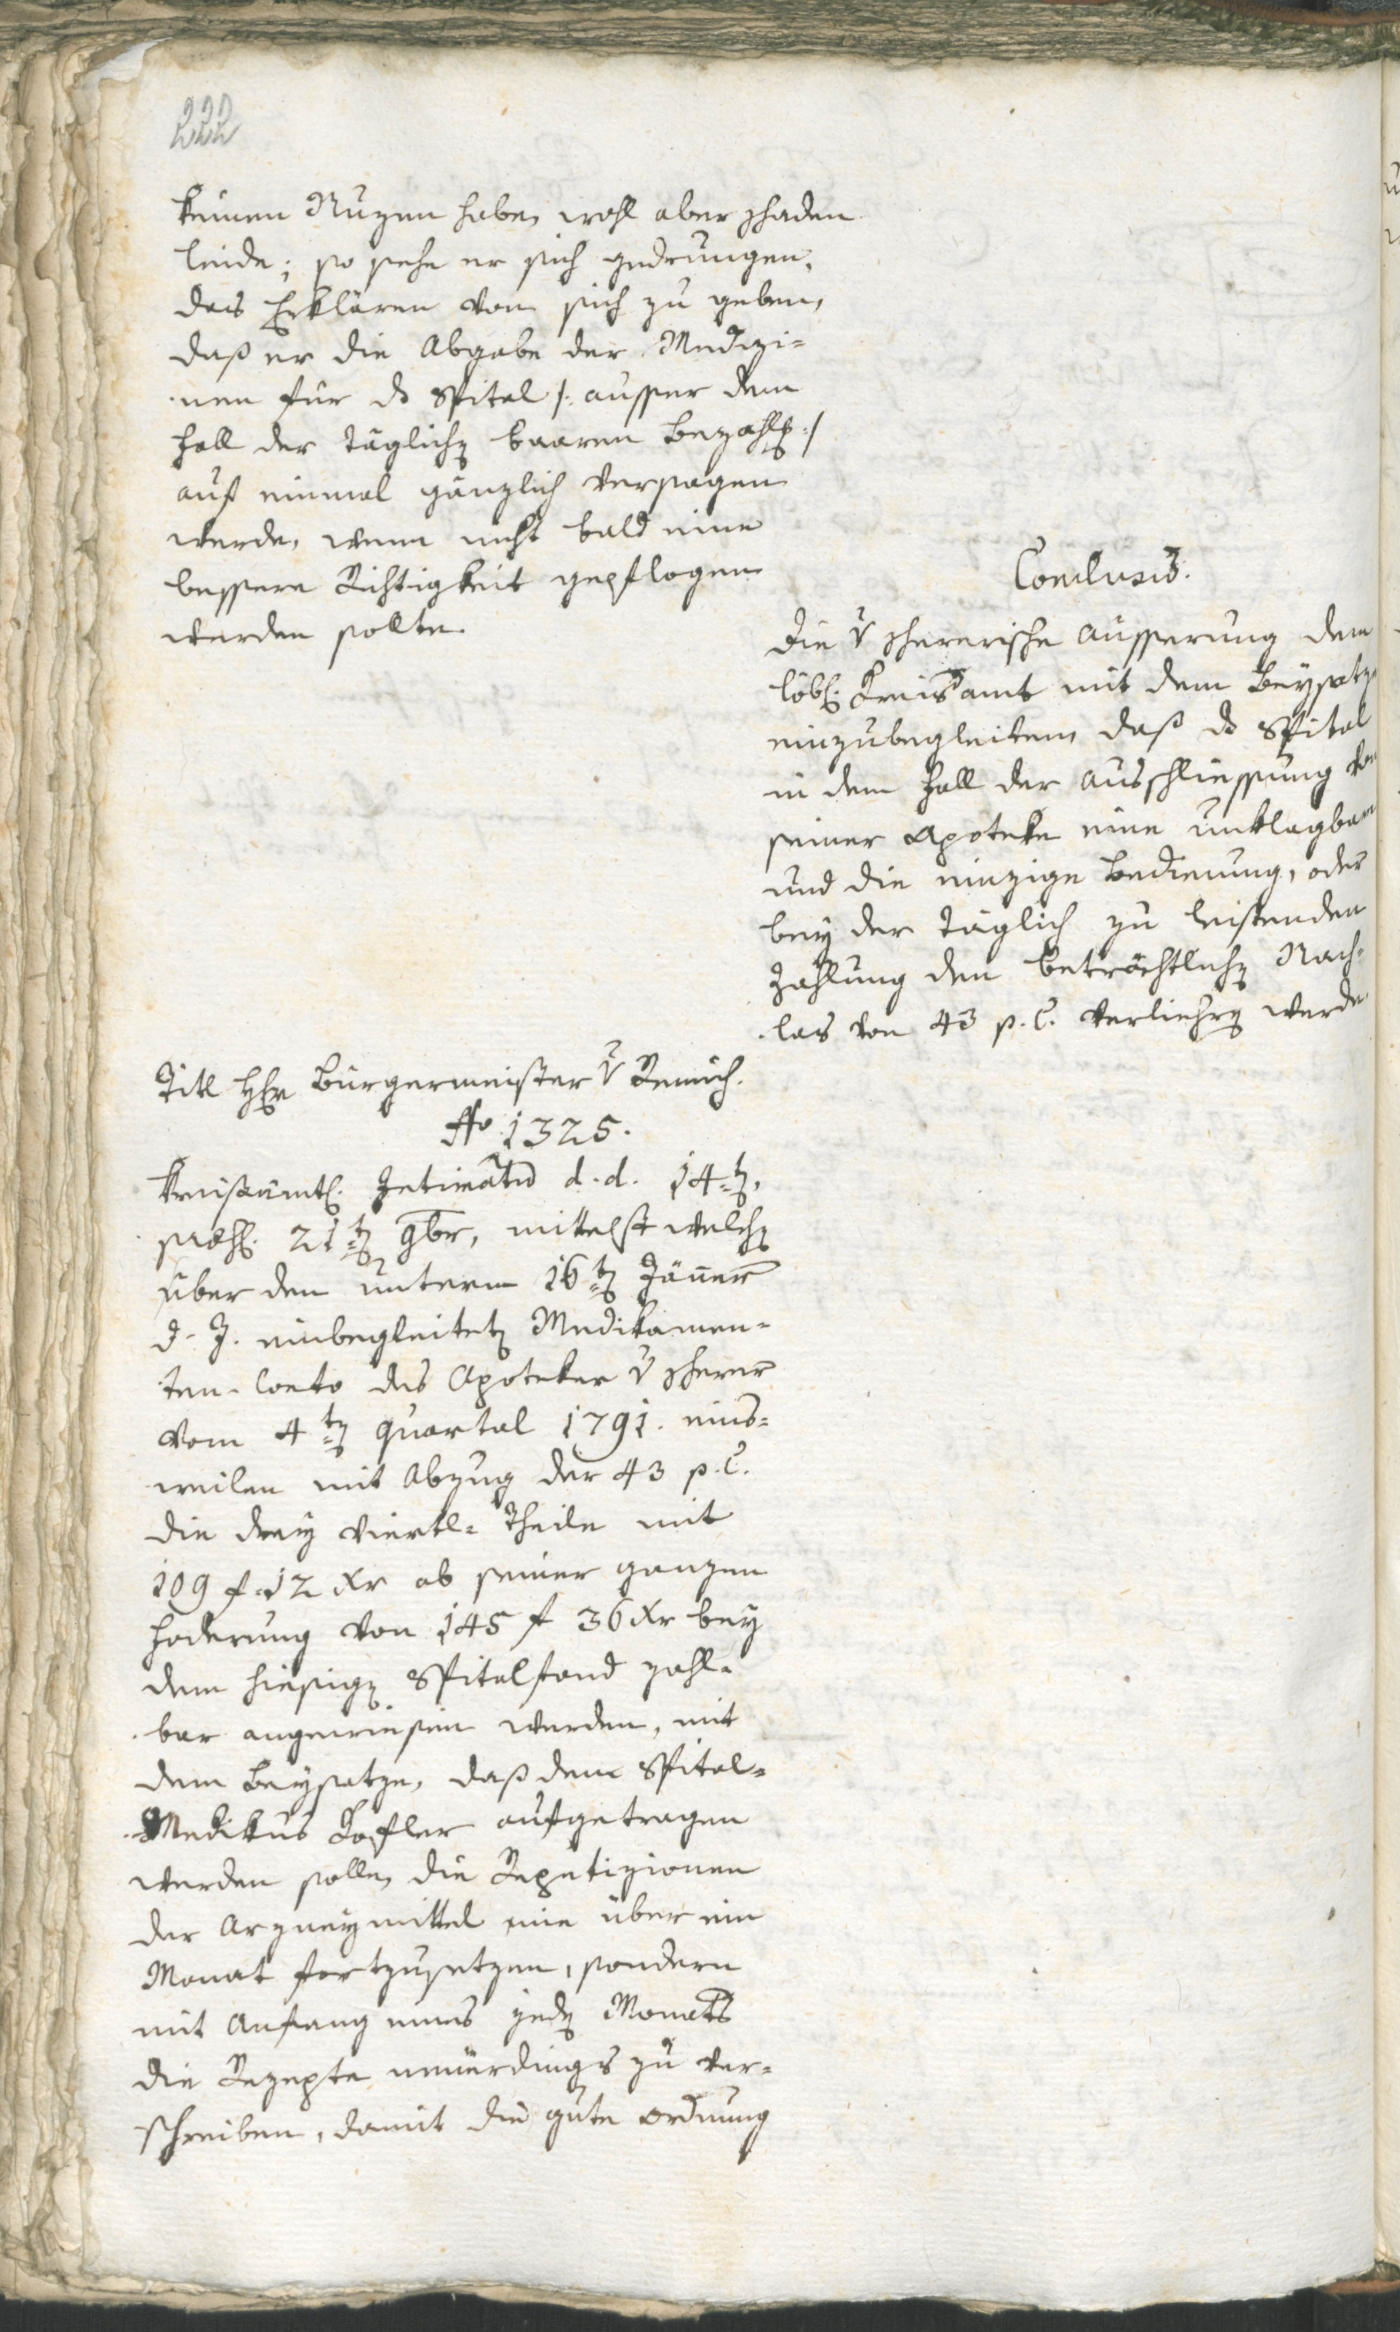 222
keinen Nuzen habe, wohl aber schaden
leide; so sehe er sich gedrungen,
das Erklären von sich zu geben,
daß er die Abgabe der Medizi=
nen für ds Spital /: ausser dem
Fall der täglichen baaren Bezahlg :/
auf einmal gänzlich versagen
werde, wenn nicht bald eine
bessere Richtigkeit gepflogen
werden sollte.
Conclusum.
Die v scherersche Äusserung dem
löbl. Kreisamt mit dem Beysatze
einzubegleiten, daß ds Spital
in dem Fall der Ausschliessung von
seiner Apoteke eine unklagbare
und die einzige Bedienung, oder
bey der täglich zu leistenden
Zahlung den beträchtlichen Nach=
las von 43 p. C. verliehren werde.
Titl Hhr Bürgermeister v Remich.
No 1325.
Kreisämtl. Intimatum d. d. 14ten,
præs. 21ten 9br, mittelst welchen
über den unterm 16ten Jänner
d. J. einbegleiteten Medikamen=
ten=Conto des Apoteker v scherer
vom 4ten Quartal 1791. eins=
weilen mit Abzug der 43 p. C.
die drey viertl= Theile mit
109 f 12 Xr ab seiner ganzen
Foderung von 145 f 36 Xr bey
dem hiesigen Spitalfond zahl=
bar angewiesen werden, mit
dem Beysatze, daß dem Spital=
Medikus Kofler aufgetragen
werden solle, die Repetizionen
der Arzneymittel nie über ein
Monat fortzusetzen, sondern
mit Anfang eines jeden Monats
die Rezepte neuerdings zu ver=
schreiben, damit die gute Ordnung